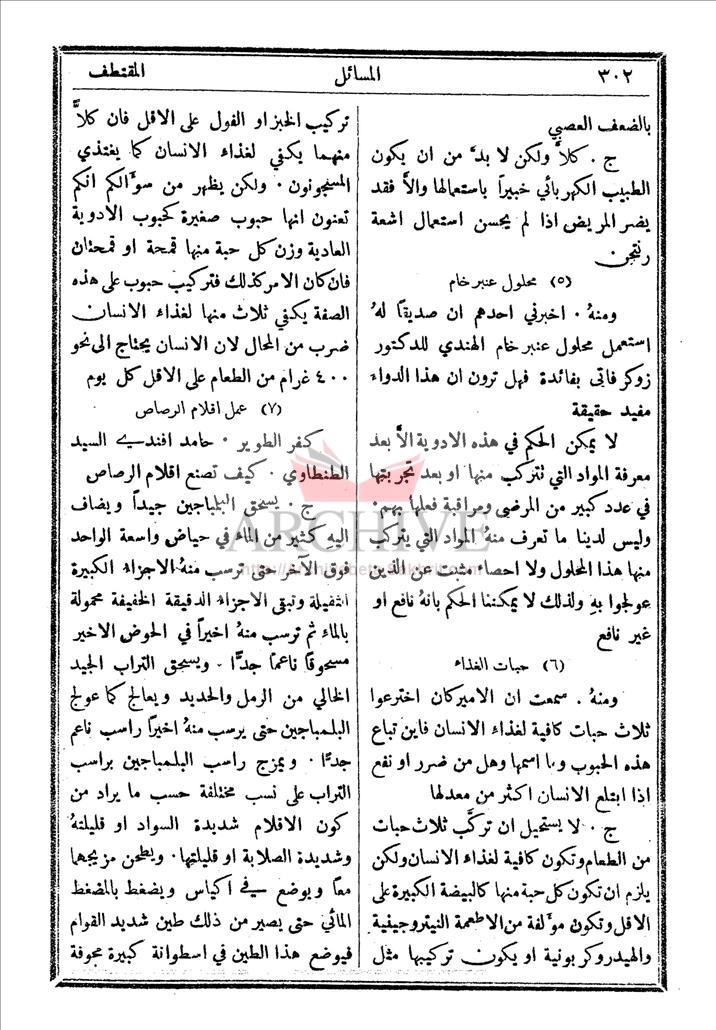 ٣٠٢ المسائل المقتطف
بالضعف العصبي
ج . كلاَّ ولكن لا بدَّ من ان يكون
الطبيب الكهربائي خبيراً باستعمالها والاَّ فقد
يضر المريض اذا لم يحسن استعمال اشعة
رنتجن
(٥) محلول عنبر خام
ومنهُ . اخبرني احدهم ان صديقاً لهُ
استعمل محلول عنبر خام الهندي للدكتور
زوكر فاتى بفائدة فهل ترون ان هذا الدواء
مفيد حقيقة
لا يمكن الحكم في هذه الادوية الاَّ بعد
معرفة المواد التي نتركب منها او بعد تجربتها
في عدد كبير من المرضى ومراقبة فعلها بهم .
وليس لدينا ما تعرف منهُ المواد التي يتركب
منها هذا المحلول ولا احصاء مثبت عن الذين
عولجوا بهِ ولذلك لا يمكننا الحكم بانهُ نافع او
غير نافع
(٦) حبات الغذاء
ومنهُ . سمعت ان الاميركان اخترعوا
ثلاث حبات كافية لغذاء الانسان فاين تباع
هذه الحبوب وما اسمها وهل من ضرر او نفع
اذا ابتلع الانسان اكثر من معدلها
ج . لا يستحيل ان تركَّب ثلاث حبات
من الطعام وتكون كافية لغذاء الانسان ولكن
يلزم ان تكون كل حبة منها كالبيضة الكبيرة على
الاقل وتكون موَّلفة من الاطعمة النيتروجينية
والهيدروكربونية او يكون تركيبها مثل
تركيب الخبز او الفول على الاقل فان كلاًّ
منهما يكفي لغذاء الانسان كما يغتذي
المسجونون . ولكن يظهر من سوَّالكم انكم
تعنون انها حبوب صغيرة كحبوب الادوية
العادية وزن كل حبة منها قمحة او قمحتان
فان كان الامر كذلك فتركيب حبوب على هذه
الصفة يكفي ثلاث منها لغذاء الانسان
ضرب من المحال لان الانسان يحتاج الى نحو
٤٠٠ غرام من الطعام على الاقل كل يوم
(٧) عمل اقلام الرصاص
كفر الطوير . حامد افندي السيد
الطنطاوي . كيف تصنع اقلام الرصاص
ج . يسحق البلمباجين جيداً ويضاف
اليهِ كثير من الماء في حياض واسعة الواحد
فوق الآخر حتى ترسب منهُ الاجزاء الكبيرة
الثقيلة وتبقى الاجزاء الدقيقة الخفيفة محمولة
بالماء ثم ترسب منهُ اخيراً في الحوض الاخير
مسحوقاً ناعماً جدًّا . ويسحق التراب الجيد
الخالي من الرمل والحديد ويعالج كما عولج
البلمباجين حتى يرسب منهُ اخيراً راسب ناعم
جدًّا . ويمزج راسب البلمباجين براسب
التراب على نسب مختلفة حسب ما يراد من
كون الاقلام شديدة السواد او قليلتهُ
وشديدة الصلابة او قليلتها . ويطحن مزيجها
معاً ويوضع في اكياس ويضغط بالمضغط
المائي حتى يصير من ذلك طين شديد القوام
فيوضع هذا الطين في اسطوانة كبيرة مجوفة
ARCHIVE